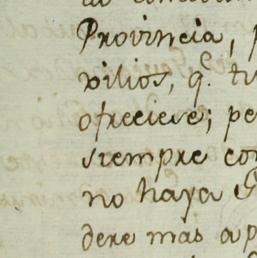 Provincia, p
vilios, q.e tu
ofreciese; pe
siempre con
no haya G
dere mas a p